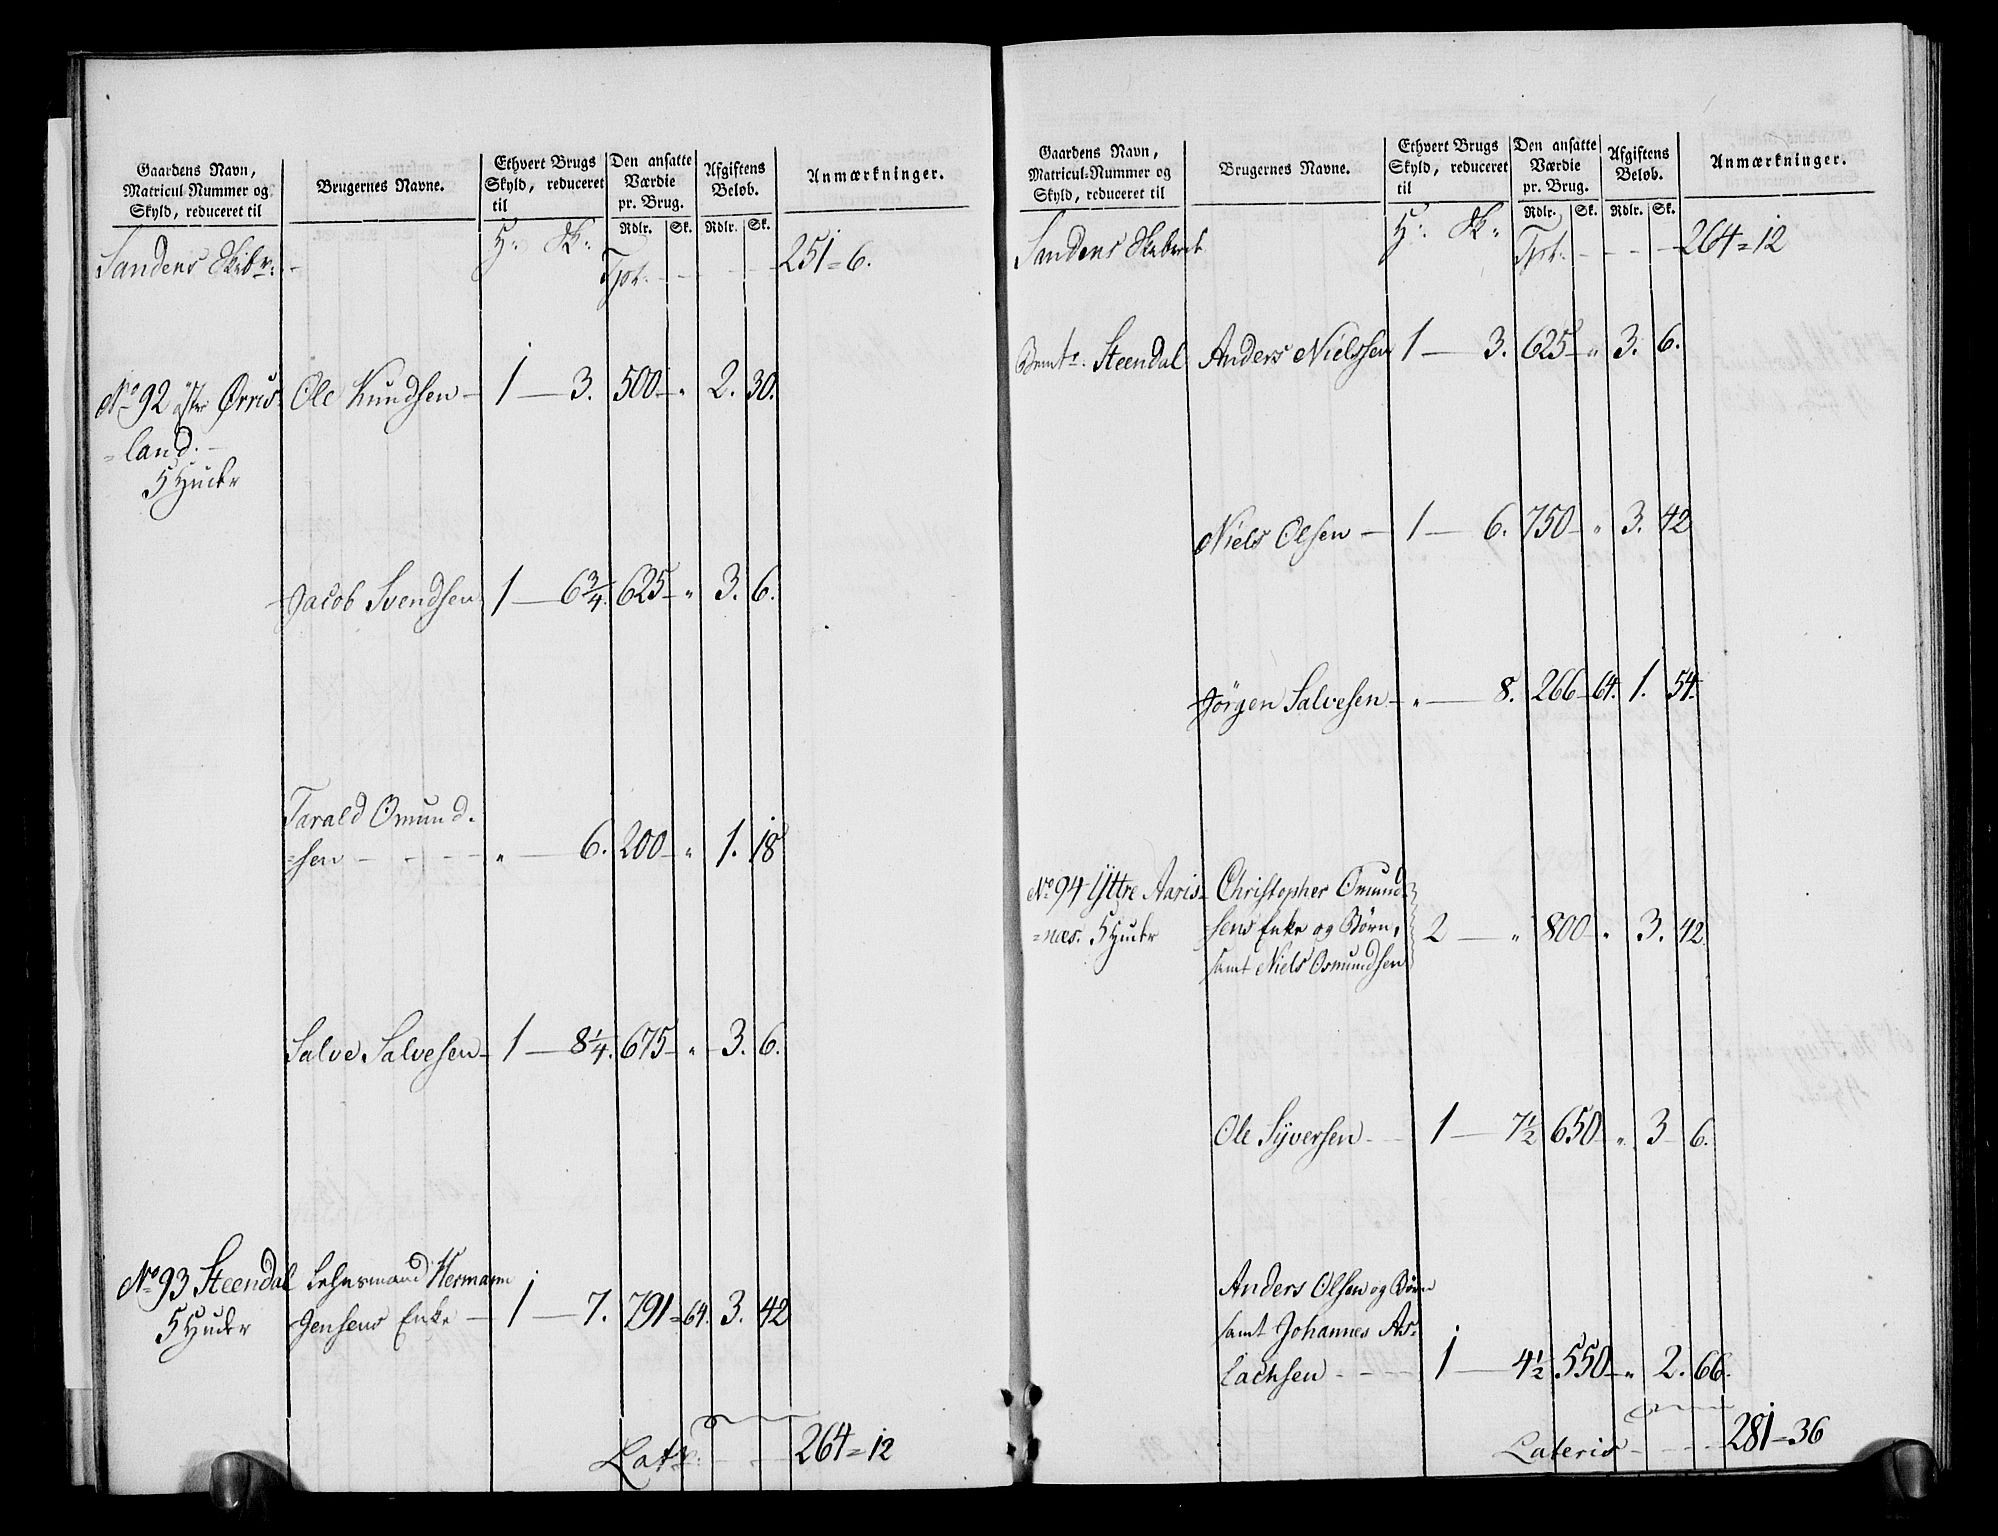 Gaardens Navn,
Matricul-Nummer og
Skyld, reduceret til
Brugernes Navne.
Ethvert Brugs
Skyld, reduceret
til
Den ansatte
Værdie
pr. Brug.
Afgiftens
Beløb.
Anmærkninger.
Rdlr. Sk. Rdlr. Sk.
H: Sk:
Sandens Skibr: - Tpt. - - - - 251=6.
No 92 öster Örris Ole Knudsen - 1 - 3. 500 - " 2. 30.
=land. -
5 Huder
Jacob Svendsen 1 - 6 3/4. 625 - " 3. 6.
Tarald Omund-
=sen - - - - " - 6. 200 - " 1. 18
Salve Salvesen - 1 - 8 1/4. 675 - " 3. 6.
No 93 Steendal Lehnsmand Hermann
5 Huder Jensens Enke - 1 - 7. 791=64. 3. 42
Latr: - - - 264=12
Gaardens Navn,
Matricul-Nummer og
Skyld, reduceret til
Brugernes Navne.
Ethvert Brugs
Skyld, reduceret
til
Den ansatte
Værdie
pr. Brug.
Afgiftens
Beløb.
Anmærkninger.
Rdlr. Sk. Rdlr. Sk.
H: Sk:
Sandens Skibred Tpt. - - - - 264=12
Bemte. Steendal Anders Nielssen 1 - 3. 625 - " 3. 6.
Niels Olsen - 1 - 6. 750 - " 3. 42
Jörgen Salvesen - " - 8. 266 - 64. 1. 54.
No 94 Yttre Aaris- Christopher Omund-
=nes. 5 Huder =sens Enke og Børn, 2 - " 800 - " 3. 42.
samt Niels Osmundsen
Ole Syversen - - 1 - 7 1/2 650 - " 3 - 6.
Anders Olsen og Børn
samt Johannes As-
lachsen - - - - 1 - 4 1/2 550 - " 2. 66.
Lateris - - - - 281=36